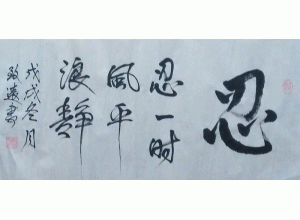 忍
忍一时
风平
浪静
戊戌冬月
致远书